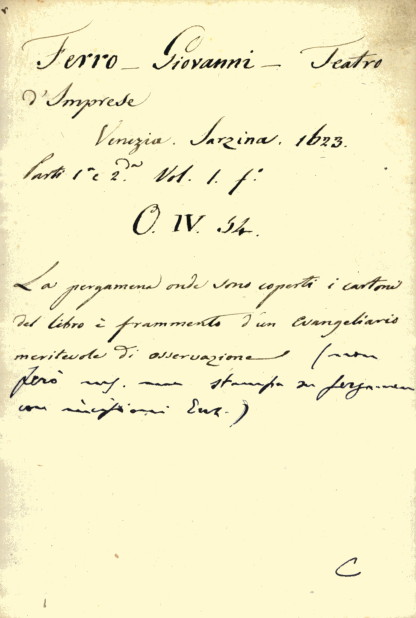 Ferro - Giovanni - Teatro
d'Imprese
Venezia. Sarzina. 1623.
Parti 1ª e 2.da Vol. 1. fº
O. IV. 34.
La pergamena onde sono coperti i cartoni
del libro è frammento d'un Evangeliario
meritevole di osservazione (non
però ms. ma stampa su pergamena
con )
C